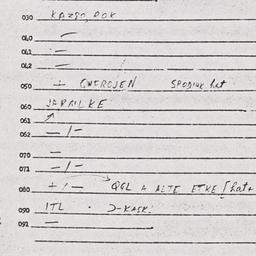 030 KAZGO, ROK
040 —
041 :—
042 —
050 + CWEROJEN SPODIUK hat
060 JARMILKE
061
062 — / —
070 —
071 — / —
080 + / — QGL A ALTE ETKE [hat+
090 ITL . J-KASK.
091 —